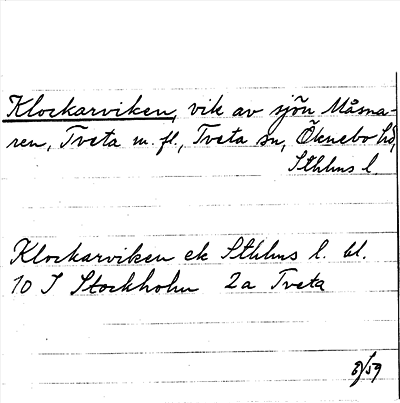 Klockarviken, vik av sjön Måsna-
ren, Tveta m. fl., Tveta sn, Öknebo hd,
Sthlms l.
Klockarviken ek Sthlms l. bl.
10 I Stockholm 2a Tveta
8/59